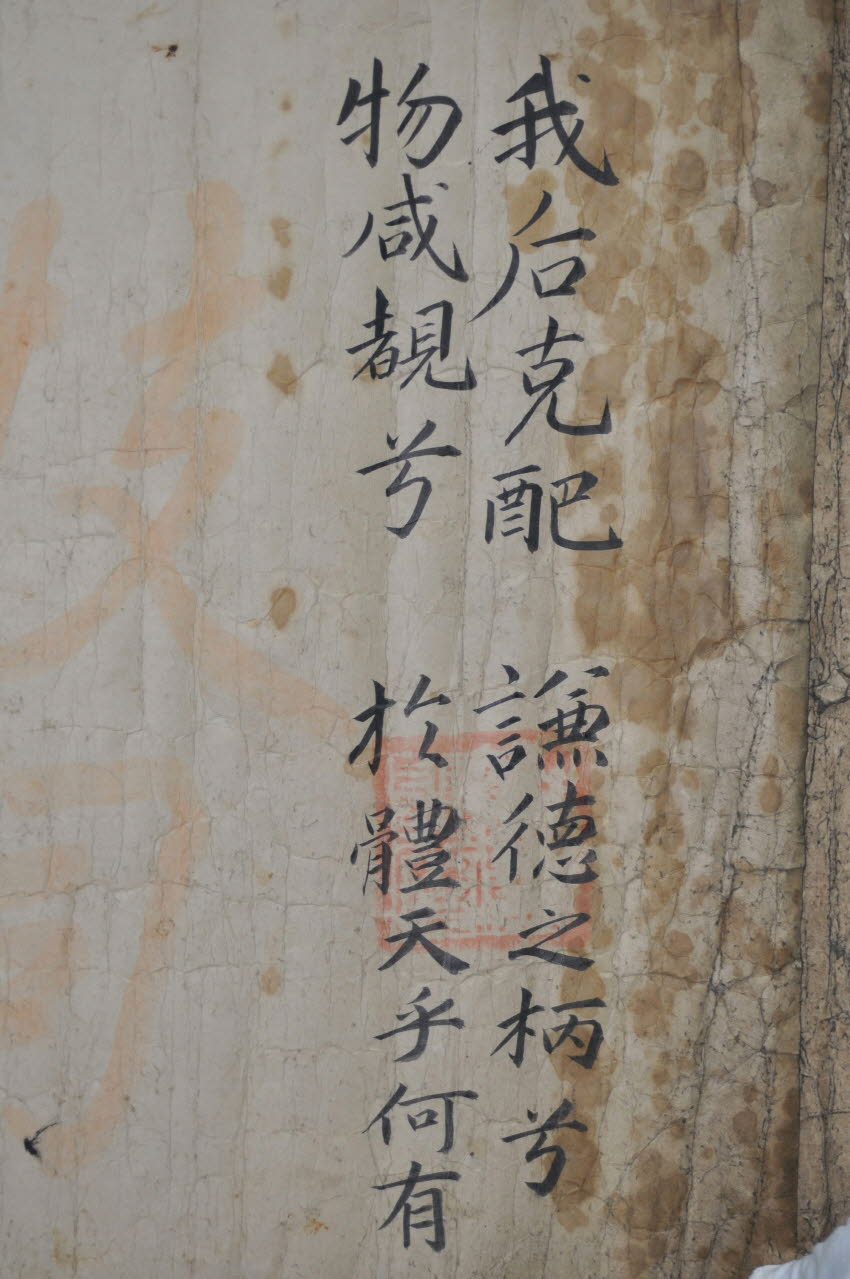 我后克配 謙德之柄兮
物咸覩兮 於體天乎何有